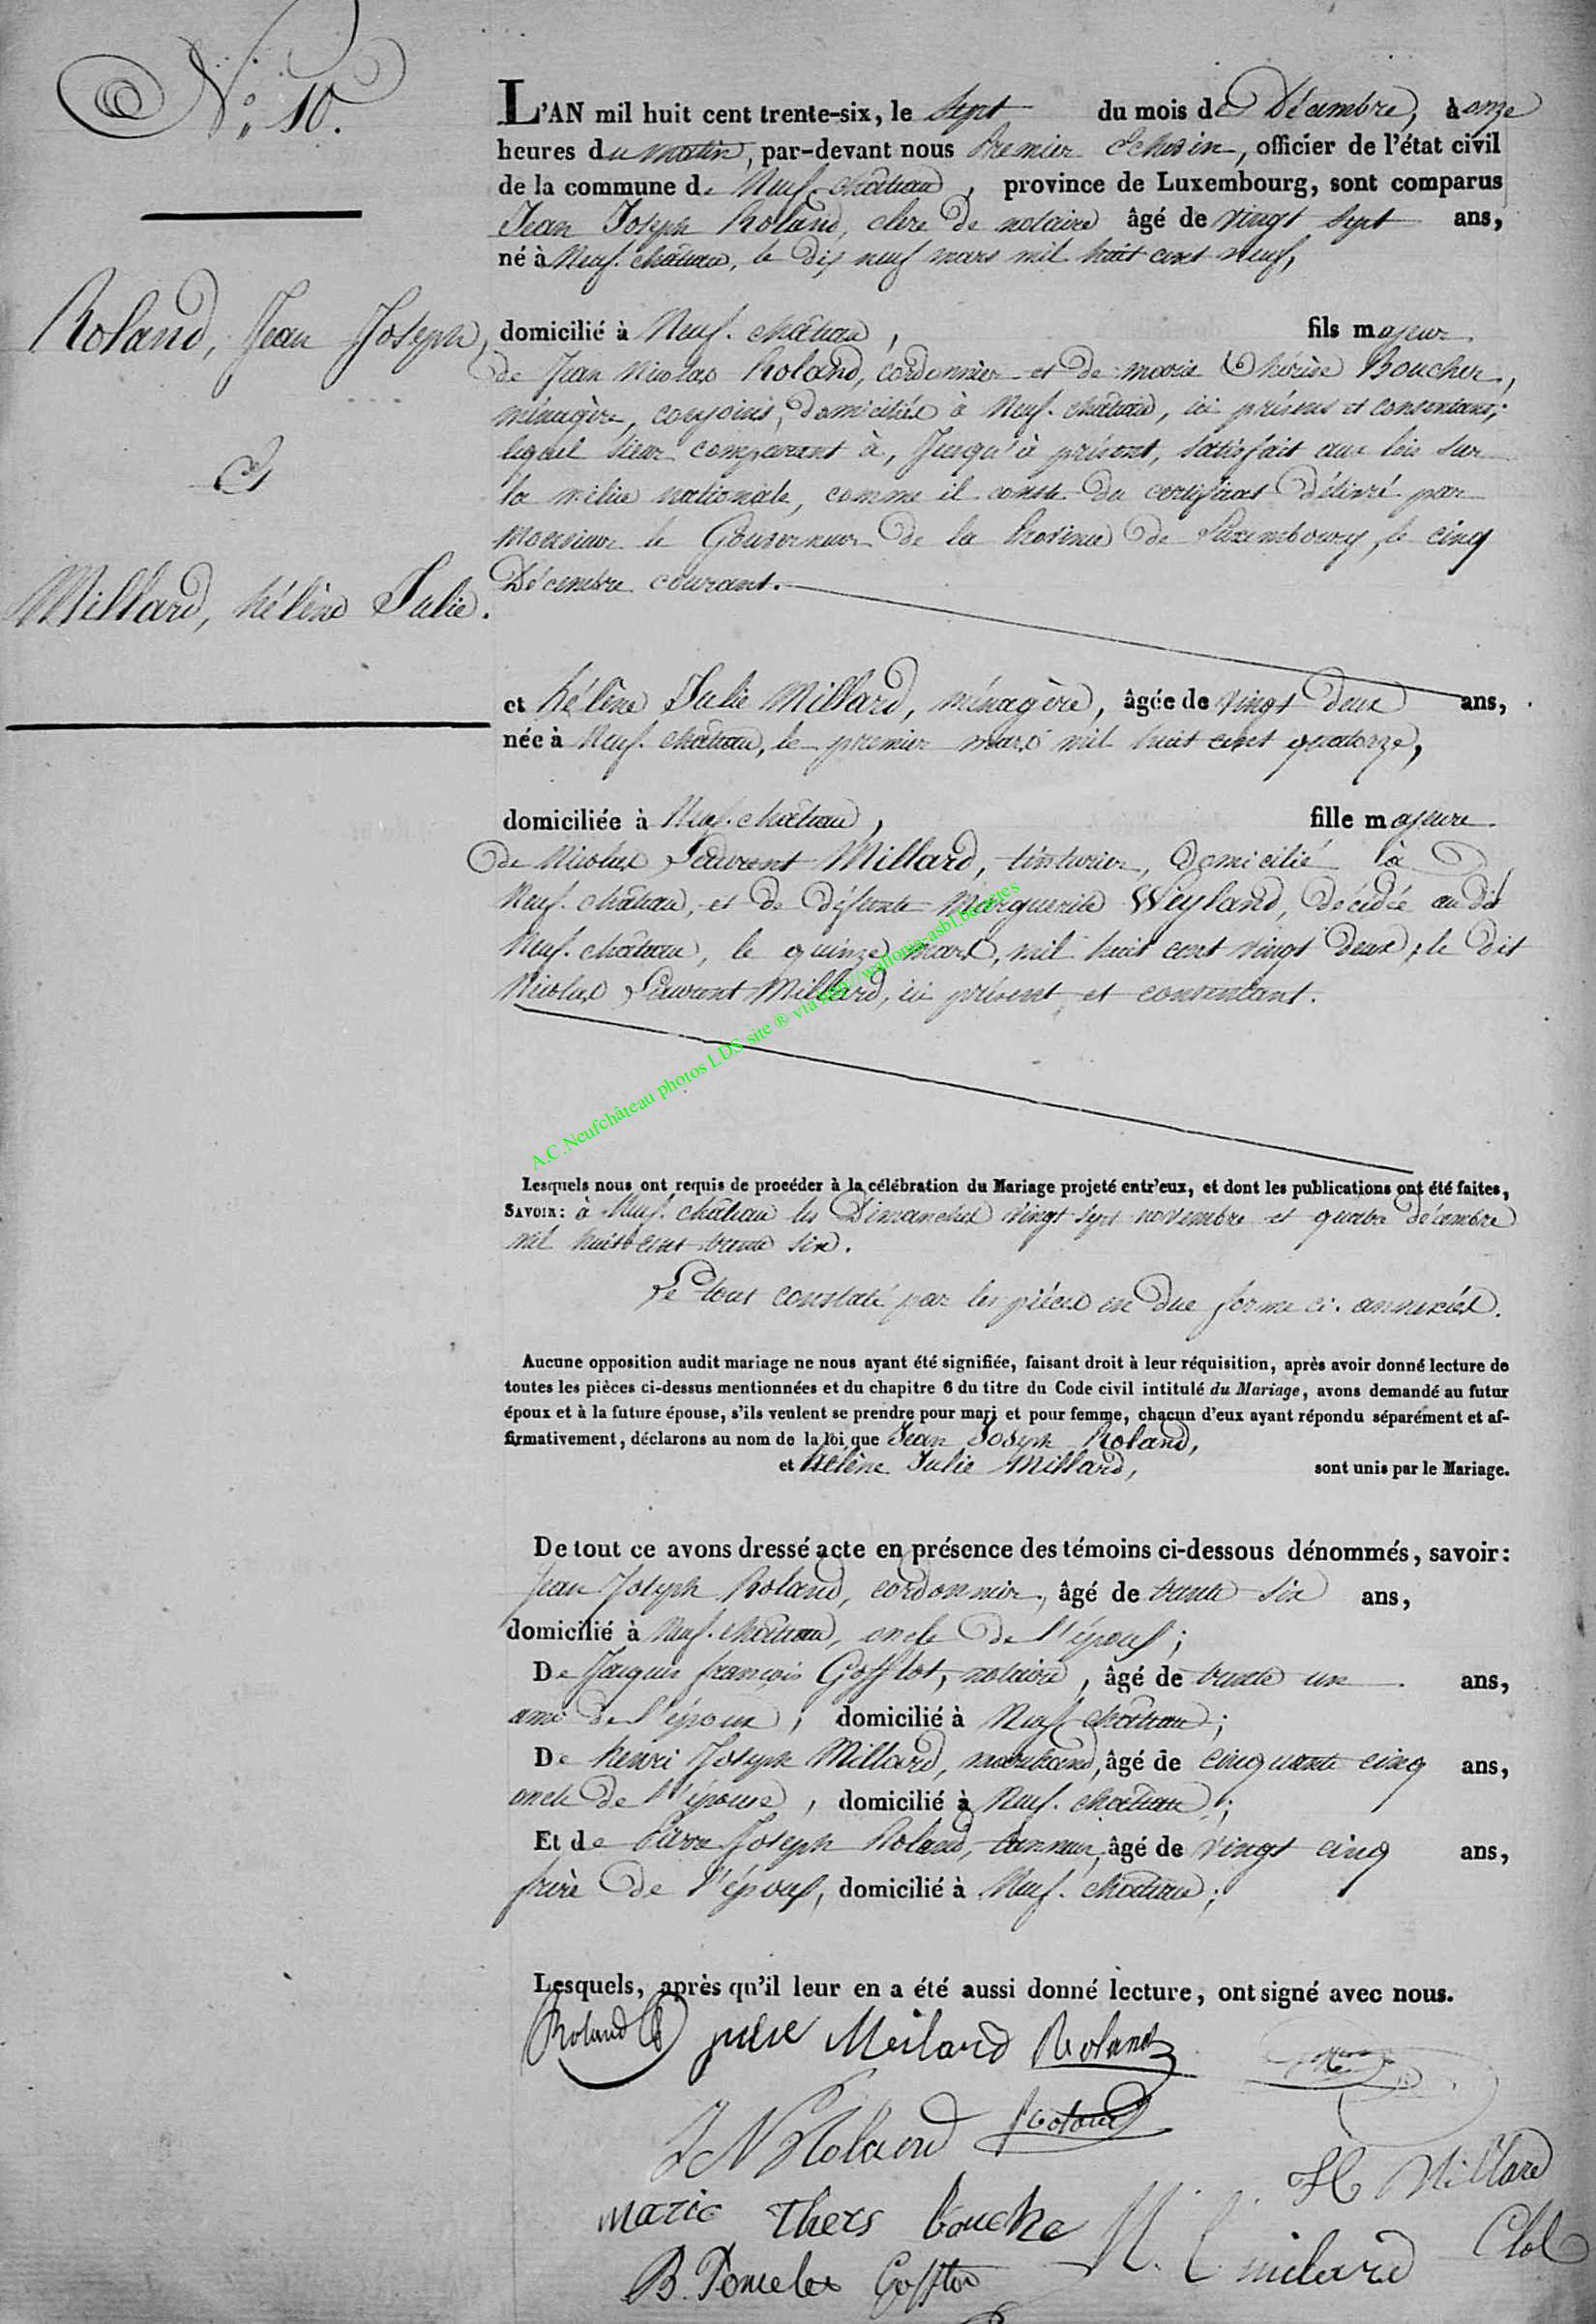 N.° 10.
Roland, Jean Joseph,
et
Millard, hélène Julie.
L'AN mil huit cent trente-six, le Sept du mois de Décembre, à onze
heures du matin, par-devant nous Premier Echevin, officier de l'état civil
de la commune de Neuf-château, province de Luxembourg, sont comparus
Jean Joseph Roland, clerc de notaire âgé de vingt sept ans,
né à Neuf-château, le dix neuf mars mil huit cent neuf,
domicilié à Neuf-château, fils majeur
de Jean Nicolas Roland, cordonnier et de marie Thérèse Boucher,
ménagère, conjoins, domiciliés à Neuf-château, ici présens et consentans;
lequel sieur comparant à, jusqu'à présent, satisfait aux lois sur
la milice nationale, comme il conste du certificat délivré par
Monsieur le Gouverneur de la Province de Luxembourg, le cinq
Décembre courant.
et hélène Julie Millard, ménagère, âgée de vingt deux ans,
née à Neuf-château, le premier mars mil huit cent quatorze,
domiciliée à Neuf-château, fille majeure
de Nicolas Laurent Millard, tinturier, domicilié à
Neuf-château, et de défunte Marguerite Weyland, décédée au dit
Neuf-château, le quinze mars, mil huit cent vingt deux; le dit
Nicolas Laurent Millard, ici présent et consentant.
A.C.Neufchâteau photos LDS site ® via http://wallonia-asbl.be/actes
Lesquels nous ont requis de procéder à la célébration du Mariage projeté entr'eux, et dont les publications ont été faites,
SAVOIR: à Neuf-château les Dimanches vingt sept novembre et quatre décembre
mil huit cent trente six.
Le tout constaté par les pièces en due forme ci-annexées.
Aucune opposition audit mariage ne nous ayant été signifiée, faisant droit à leur réquisition, après avoir donné lecture de
toutes les pièces ci-dessus mentionnées et du chapitre 6 du titre du Code civil intitulé du Mariage, avons demandé au futur
époux et à la future épouse, s'ils veulent se prendre pour mari et pour femme, chacun d'eux ayant répondu séparément et af-
firmativement, déclarons au nom de la loi que Jean Joseph Roland,
et hélène Julie Millard, sont unis par le Mariage.
De tout ce avons dressé acte en présence des témoins ci-dessous dénommés, savoir:
Jean Joseph Roland, cordonnier, âgé de trente six ans,
domicilié à Neuf-château, oncle de l'époux;
De Jaques françois Gofflot, notaire, âgé de trente un ans,
ami de l'époux, domicilié à Neuf-château;
De henri Joseph Millard, marchand, âgé de cinquante cinq ans,
oncle de l'épouse, domicilié à Neuf-château;
Et de Pierre Joseph Roland, tanneur, âgé de vingt cinq ans,
frère de l'époux, domicilié à Neuf-château;
Lesquels, après qu'il leur en a été aussi donné lecture, ont signé avec nous.
Roland julie Meilard Roland
J N Rolland Roland
H Millard
marie thers bouche N. L. milard
B. Poncelex Gofflot